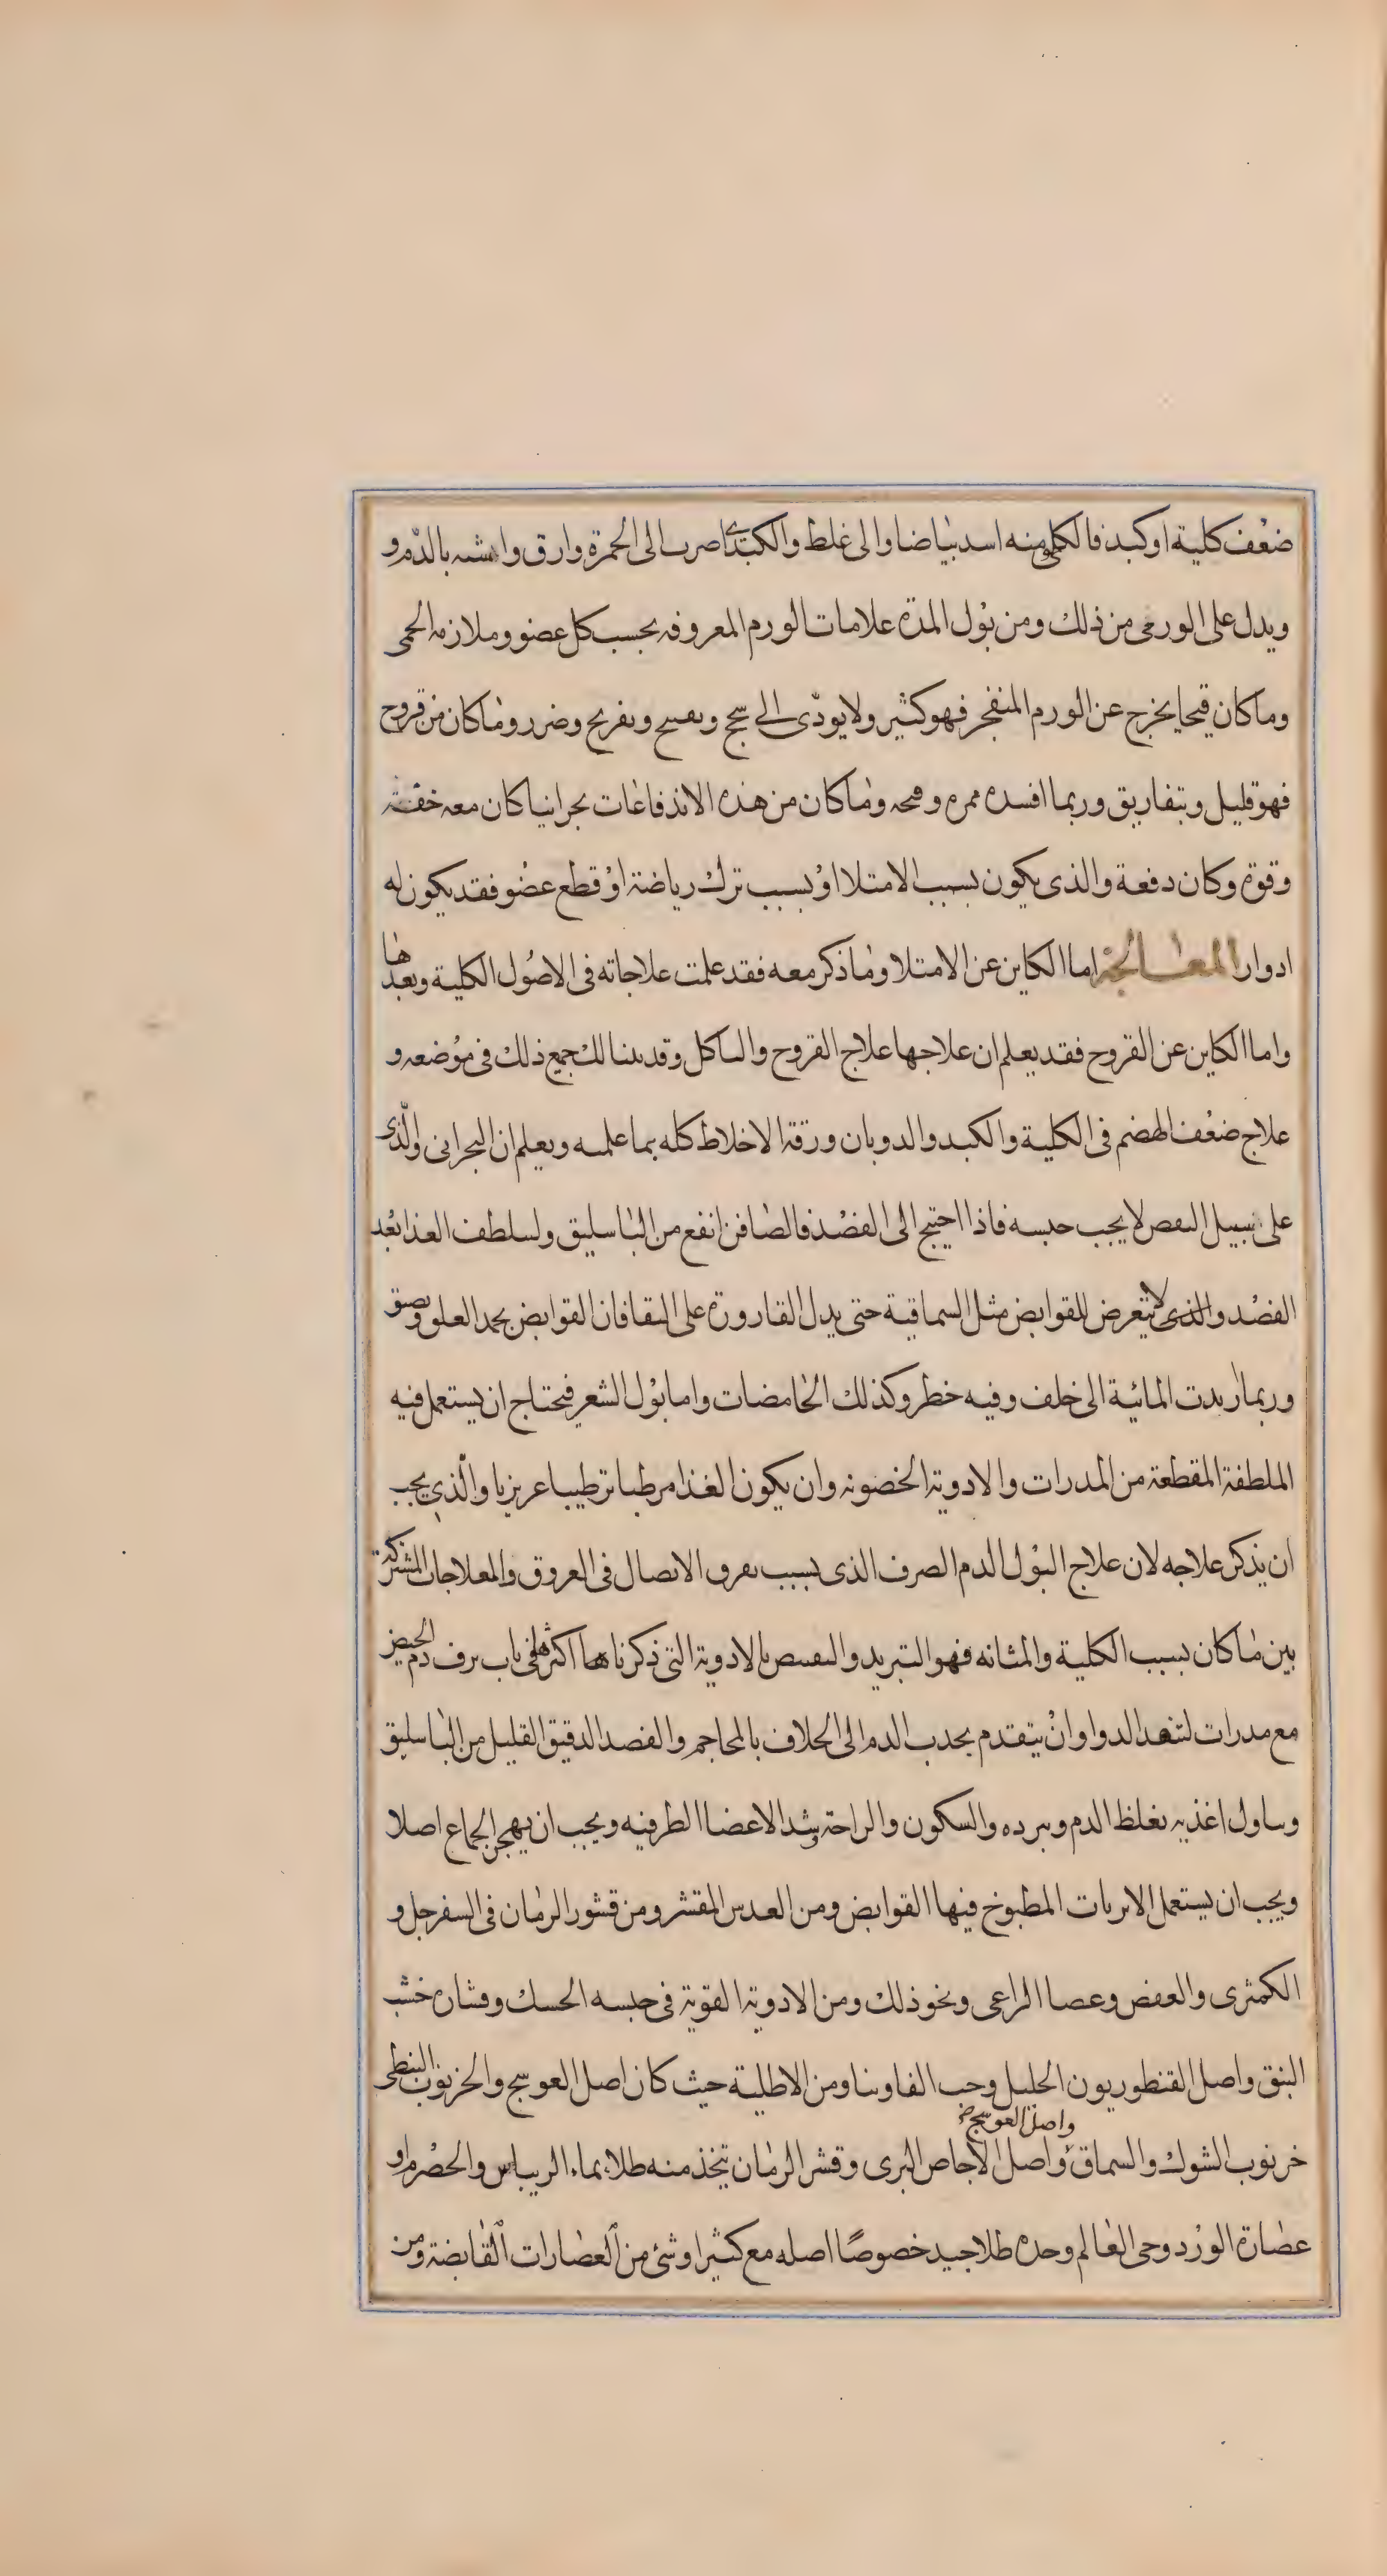 ضعف كلية او كبد فالكلى منه اسد بياضا والى غلط والكبدى اصرب الى الحمرة وارق واشبه بالدم و
ويدل على الورمى من ذلك ومن بول المدة علامات الورم المعروفه بحسب كل عضو وملازمه الحمى
وما كان قيحا يخرج عن الورم المنفجر فهو كثير ولا يودى الى سحج وتفريح وضرر وما كان من قروح
فهو قليل وبتفاريق وربما افسده ممره وما كان من هذه الاندفاعات بحرانيا كان معه خفة
وقوة وكان دفعة والذى يكون بسبب الامتلا او بسبب ترك رياضة او قطع عضو فقد يكون له
ادوار المعالجة اما الكاين عن الامتلا وما ذكر معه فقد علمت علاجاته فى الاصول الكلية وبعدها
واما الكاين عن القروح فقد يعلم ان علاجها علاج القروح والتاكل وقد بينا لك جميع ذلك فى موضعه و
علاج ضعف الهضم فى الكلية والكبد والدوبان ورقة الاخلاط كله بما علمته ويعلم ان البحرانى والذى
على سبيل النفص لا يجب حبسه فاذا احتيج الى الفصد فالصافن انفع من الباسليق ولسلطف الغذا بعد
الفصد والذى لا يتعرض للقوابض مثل السماقية حتى يدل القارورة على النقا فان القوابض يجمد العلق ويضيق
وربما ردت المائية الى خلف وفيه خطر وكذلك الحامضات واما بول الشعر فيحتاج ان يستعمل فيه
الملطفة المقطعة من المدرات والادوية الحصويه وان يكون الغذا مرطبا ترطيبا عزيزيا والذى يجب
ان يذكر علاجه لان علاج البول الدم الصرف الذى بسبب تفرق الاتصال فى العروق والمعلاجات المشتركة
بين ما كان بسبب الكلية والمثانه فهو التبريد والتقبيض بالادوية التى ذكرناها اكثرها فى باب نزف دم الحيض
مع مدرات لتنفد الدوا وان يتقدم بجدب الدم الى الخلاف بالمحاجم والفصد الدقيق القليل من الباسليق
وتناول اغذيه تغلظ الدم وتبرده والسكون والراحة وشد الاعضا الطرفيه ويجب ان يهجر الجماع اصلا
ويجب ان يستعمل الابزنات المطبوخ فيها القوابض ومن العدس المقشر ومن قشور الرمان فى السفرجل و
الكمثرى والعفص وعصا الراعى ونحو ذلك ومن الادوية القوية فى حبسه الحسك ونشارة خشب
النبق واصل القنطوريون الجليل وحب الفاوينا ومن الاطلية حيث كان اصل العوسج والخرنوب النبطى
واصل العوسج
خرنوب الشوك والسماق واصل الاجاص البرى وقشر الرمان يتخذ منه طلاء بماء الريباس والحصرم او
عصارة الورد وحى العالم وحده طلا جيد خصوصًا اصله مع كثيرا وشئ من العصارات القابضة ومن